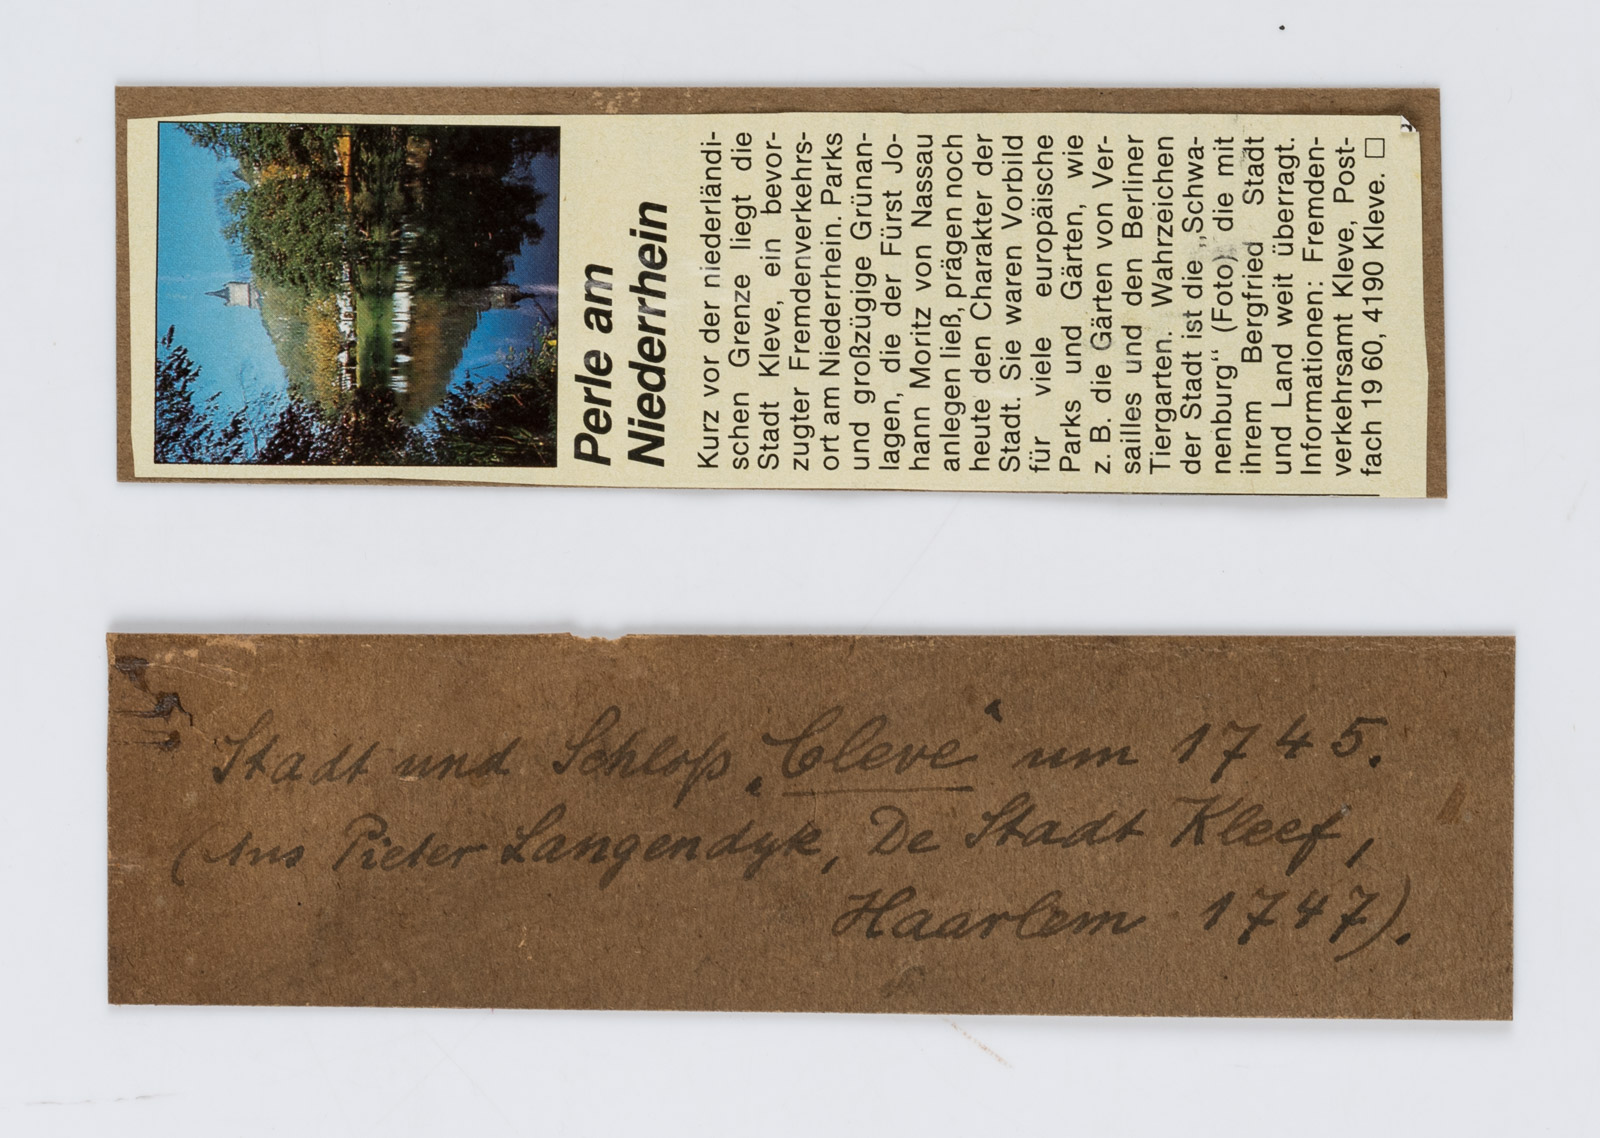 Perle am
Niederrhein
Kurz vor der niederländi-
schen Grenze liegt die
Stadt Kleve, ein bevor-
zugter Fremdenverkehrs-
ort am Niederrhein. Parks
und großzügige Grünan-
lagen, die der Fürst Jo-
hann Moritz von Nassau
anlegen ließ, prägen noch
heute den Charakter der
Stadt. Sie waren Vorbild
für viele europäische
Parks und Gärten, wie
z. B. die Gärten von Ver-
sailles und den Berliner
Tiergarten. Wahrzeichen
der Stadt ist die „Schwa-
nenburg“ (Foto), die mit
ihrem Bergfried Stadt
und Land weit überragt.
Informationen: Fremden-
verkehrsamt Kleve, Post-
fach 19 60, 4190 Kleve. □
Stadt und Schloß „Cleve“ um 1745.
(Aus Pieter Langendyk, De Stadt Kleef,
Haarlem 1747).